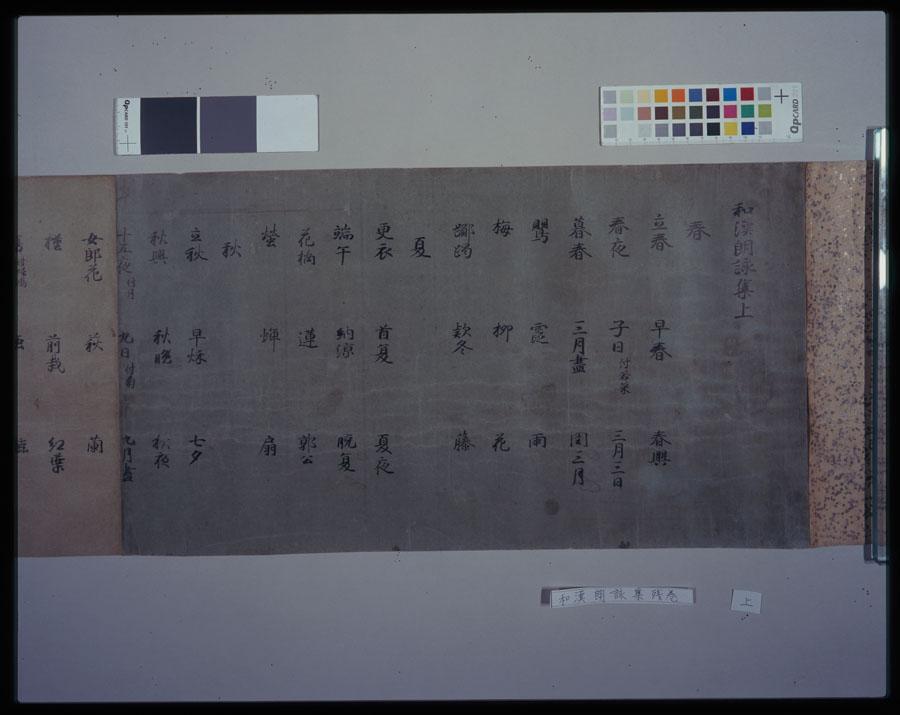 和漢朗詠集上
春
立春 早春 春興
春夜 子日付若菜 三月三日
暮春 三月盡 閏三月
鸎 霞 雨
梅 柳 花
躑躅 款冬 藤
夏
更衣 首夏 夏夜
端午 納涼 晩夏
花橘 蓮 郭公
螢 蟬 扇
秋
立秋 早秋 七夕
秋興 秋晩 秋夜
十五夜付月 九日付菊 九月盡
女郎花 萩 蘭
槿 前栽 紅葉
QPCARD
QPCARD 201
和漢朗詠集残巻
上